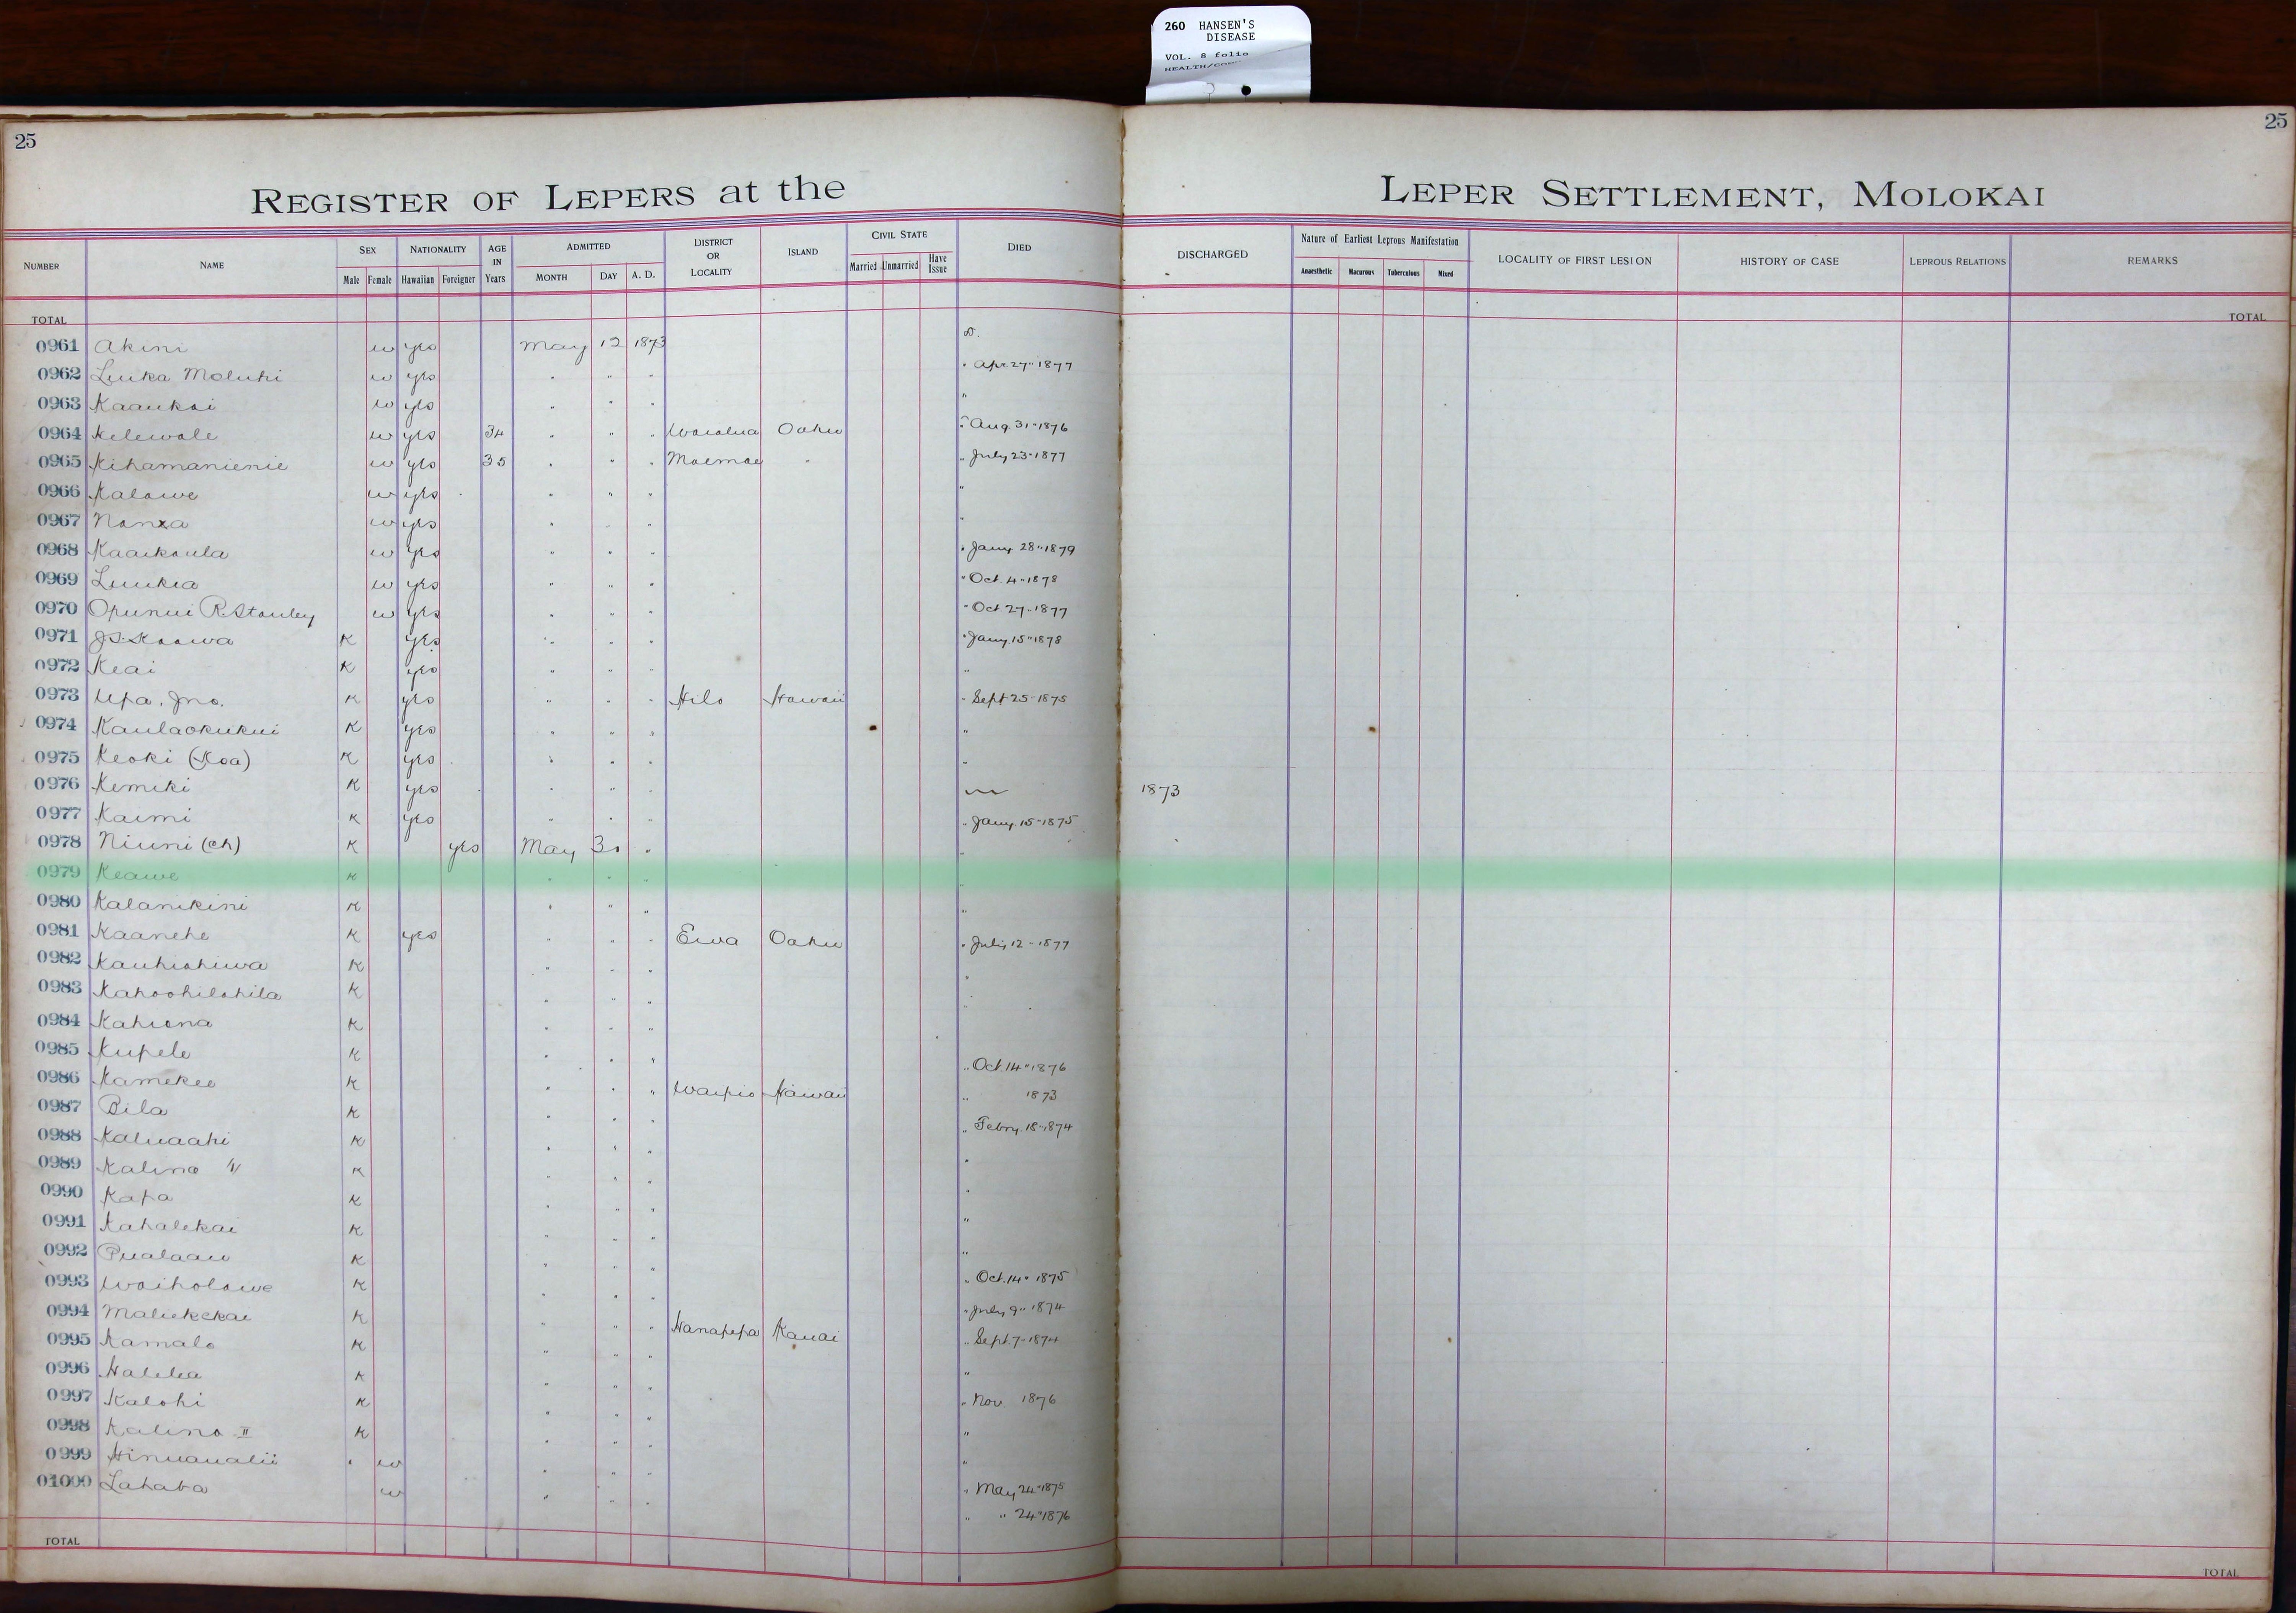 260 HANSEN'S
DISEASE
VOL. 8 folio
25
25
REGISTER OF LEPERS at the
LEPER SETTLEMENT, MOLOKAI
NUMBER NAME SEX Male Female NATIONALITY Hawaiian Foreigner AGE IN Years ADMITTED MONTH DAY A. D. DISTRICT OR LOCALITY ISLAND CIVIL STATE Married Unmarried Have Issue DIED DISCHARGED Nature of Earliest Leprous Manifestation Anaesthetic Macurous Tuberculous Mixed LOCALITY OF FIRST LESION HISTORY OF CASE LEPROUS RELATIONS REMARKS
TOTAL TOTAL
0961 Akini w yes May 12 1873 D.
0962 Luika Moluhi w yes " " " " Apr. 27" 1877
0963 Kaaukai w yes " " " "
0964 Kelewale w yes 34 " " " Waialua Oahu " Aug. 31" 1876
0965 Kihamanienie w yes 35 " " " Moemoe " " July 23" 1877
0966 Kalawe w yes " " " "
0967 w yes " " " "
0968 Kaaikaula w yes " " " " Jany. 28" 1879
0969 Luukia w yes " " " " Oct. 4" 1878
0970 Opunui R. Stanley w yes " " " " Oct 27" 1877
0971 J.S. Kaawa K yes " " " " Jany. 15" 1878
0972 Keai K yes " " " "
0973 Upa. Jno. K yes " " " Hilo Hawaii " Sept 25" 1875
0974 Kaulaokukui K yes " " " "
0975 Keoki (Koa) K yes " " " "
0976 Kemiki K yes " " " 1873
0977 Kaimi K yes " " " " Jany. 15" 1875
0978 Niuni (Ch) K yes May 30 " "
0979 Keawe K " " " "
0980 Kalanikini K " " " "
0981 Kaanehe K yes " " " Ewa Oahu " July 12" 1877
0982 Kauhiohiwa K " " " "
0983 Kahoohilohila K " " " "
0984 Kahiona K " " "
0985 Kupele K " " " " Oct. 14" 1876
0986 Kamekeo K " " " Waipio Hawaii " 1873
0987 Pila K " " " " Febry. 18" 1874
0988 Kaluaahi K " " " "
0989 Kalino K " " " "
0990 Kapa K " " " "
0991 Kahalekai K " " " "
0992 Pualaau K " " " " Oct. 14" 1875
0993 Waiholowe K " " " " July 9" 1874
0994 Maliekekai K " " " Hanapepa Kauai " Sept. 7" 1874
0995 Kamalo K " " " "
0996 Halelea K " " " " Nov. 1876
0997 Kalohi K " " " "
0998 Kalino II K " " " "
0999 Hinuaualii w " " " " May 24" 1875
01000 Lahaba w " " " " " 24" 1876
TOTAL TOTAL